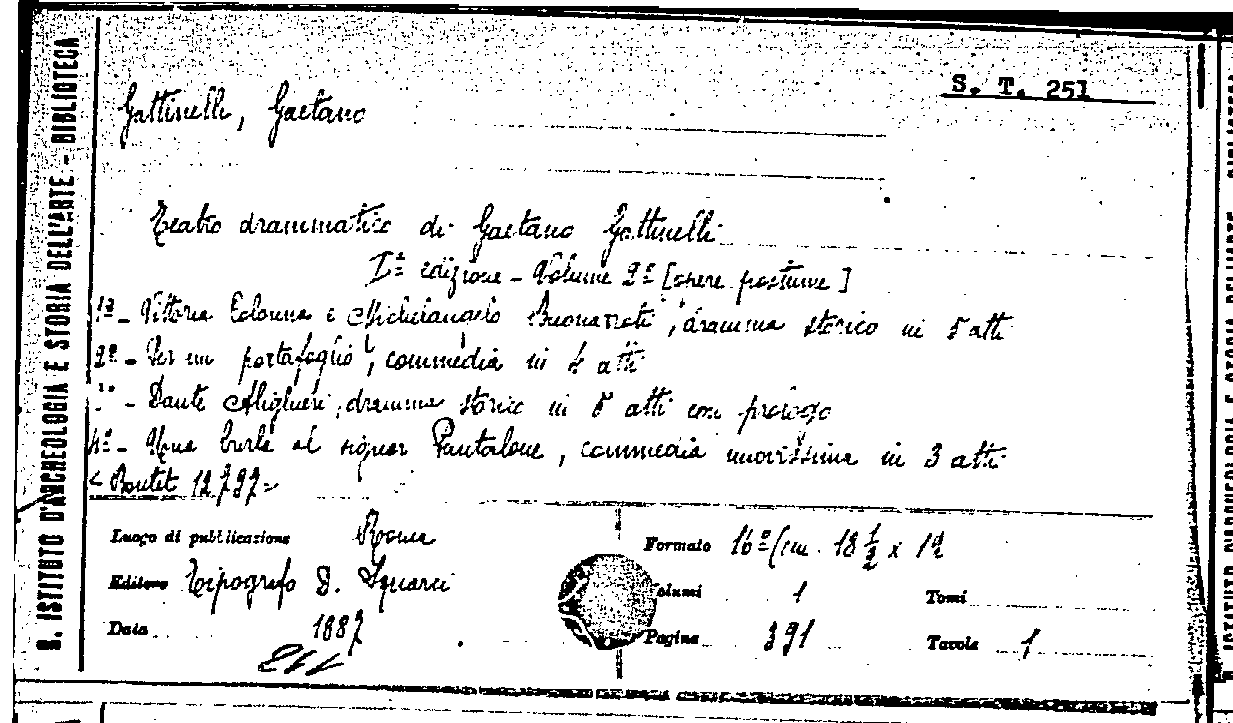 R. ISTITUTO D'ARCHEOLOGIA E STORIA DELL'ARTE - BIBLIOTECA
S. T. 251
Gattinelli, Gaetano
Teatro drammatico di Gaetano Gattinelli
Iª edizione - Volume 2º [opere postume]
1º - Vittoria Colonna e Michelangelo Buonarroti, dramma storico in 5 atti
2º - Per un portafoglio, commedia in 4 atti
- Dante Alighieri, dramma storico in 5 atti con prologo
4º - Una burla al signor Pantalone, commedia nuovissima in 3 atti
< Boutet 12797 >
Luogo di pubblicazione Roma
Editore Tipografo D. Squarci
Data 1887
Formato 16º (cm. 18 1/2 x 12
Volumi 1 Tomi
Pagine 391 Tavole 1